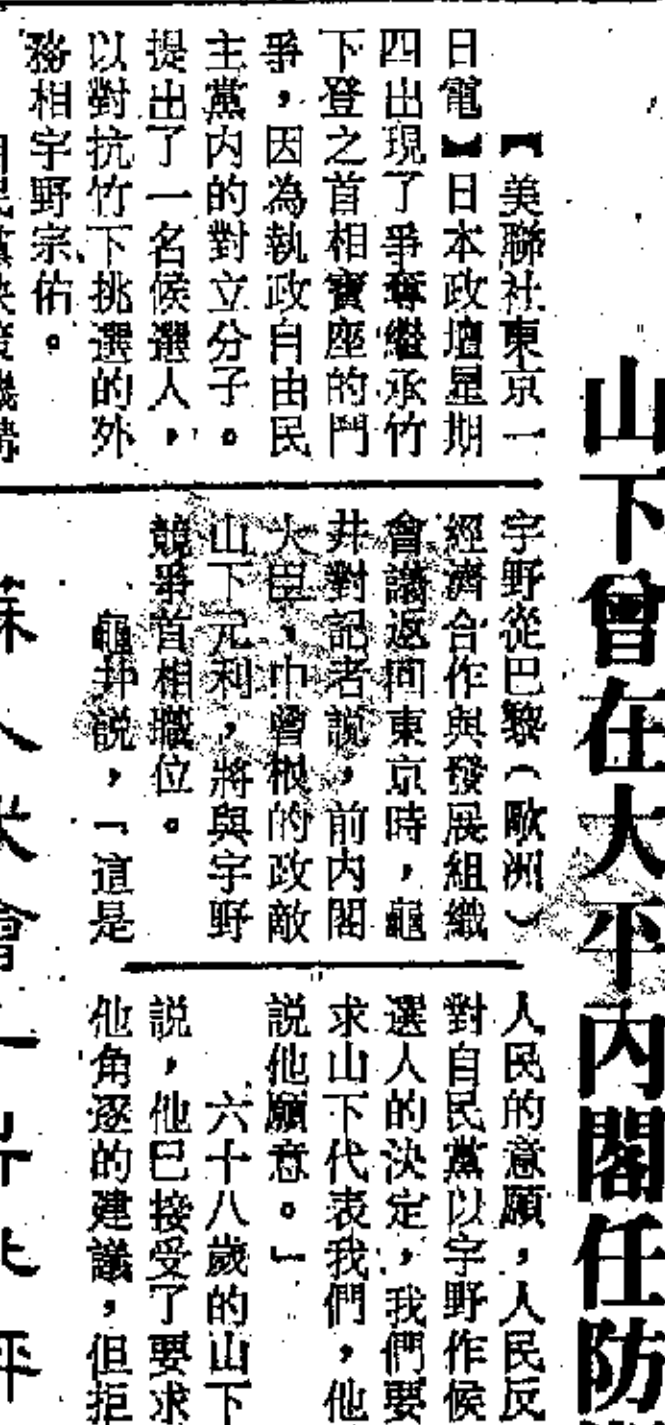 山下曾在大平內閣任防
【美聯社東京一
日電】日本政壇星期
四出現了爭奪繼承竹
下登之首相寶座的鬥
爭，因為執政自由民
主黨内的對立分子。
提出了一名候選人，
以對抗竹下挑選的外
務相宇野宗佑。
宇野從巴黎（歐洲）
經濟合作與發展組織
會議返回東京時，龜
井對記者說，前内閣
大臣、中曾根的政敵
山下元利，將與宇野
競爭首相職位。
龜井說，「這是
人民的意願，人民反
對自民黨以宇野作候
選人的決定，我們要
求山下代表我們，他
說他願意。」
六十八歲的山下
說，他已接受了要求
他角逐的建議，但拒